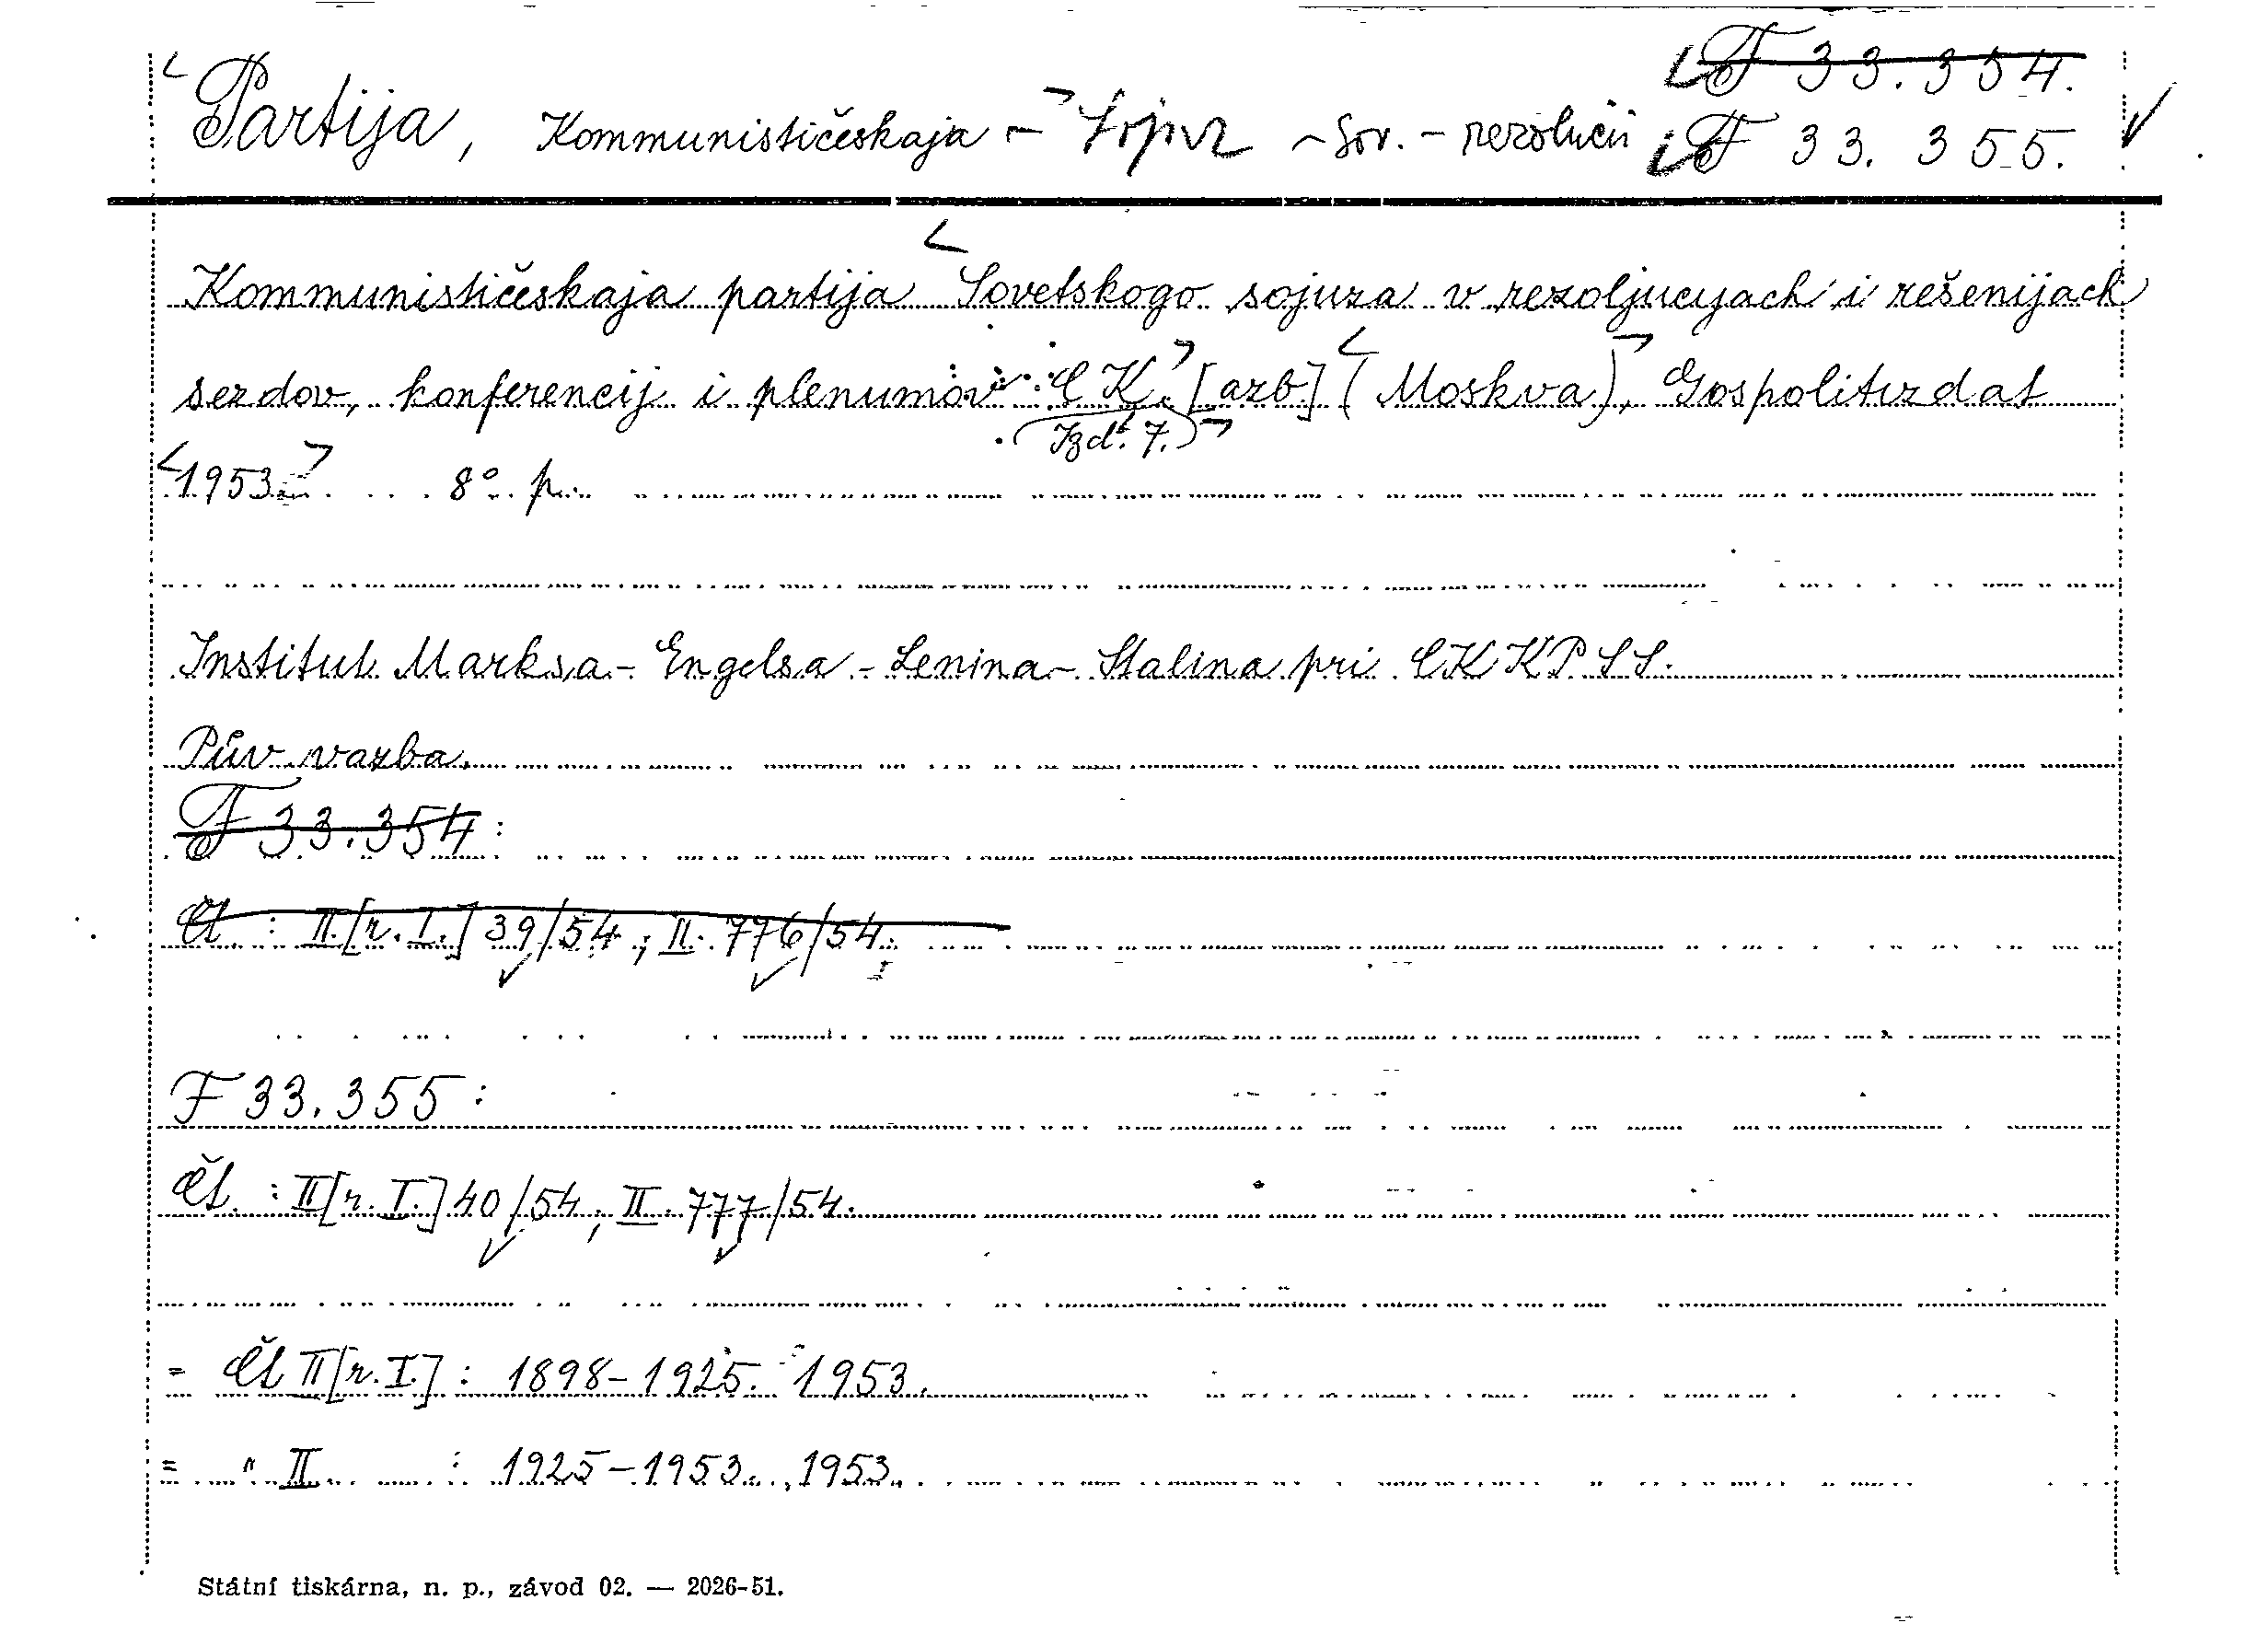 F 33.354.
Partija, Kommunističeskaja - Sojuz - Sov. - rezolucii F 33.355.
Kommunističeskaja partija Sovetskogo sojuza v rezoljucyach i rešenijach
sezdov, konferencij i plenumov CK. [azb] (Moskva), Gospolitizdat
(Izd. 7.)
1953. 8° p.
Institut Marksa - Engelsa - Lenina - Stalina pri CK KPSS.
Pův. vazba.
F 33.354:
Čt. : II[r. I.] 39/54 ; II. 776/54.
F 33.355 :
Čt. : II[r. I.] 40/54 ; II. 777/54.
= Čt II[r. I.] : 1898-1925. 1953.
= " II : 1925-1953. , 1953.
Státní tiskárna, n. p., závod 02. — 2026-51.